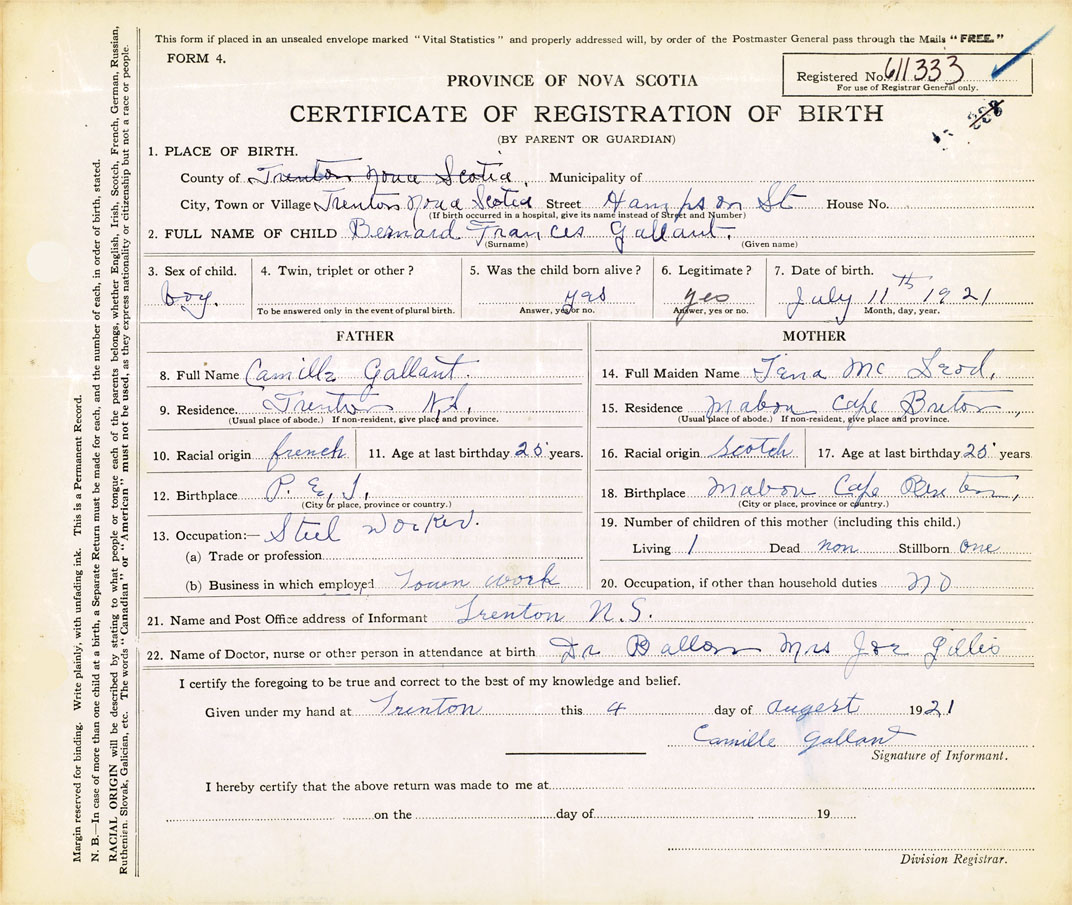 This form if placed in an unsealed envelope marked "Vital Statistics" and properly addressed will, by order of the Postmaster General pass through the Mails "FREE."
FORM 4.
Registered No. 611333
For use of Registrar General only.
PROVINCE OF NOVA SCOTIA
CERTIFICATE OF REGISTRATION OF BIRTH
(BY PARENT OR GUARDIAN)
1. PLACE OF BIRTH.
County of Trenton Nova Scotia. Municipality of
City, Town or Village Trenton Nova Scotia Street Hampson St House No.
(If birth occurred in a hospital, give its name instead of Street and Number)
2. FULL NAME OF CHILD Bernard Frances Gallant.
(Surname) (Given name)
3. Sex of child. 4. Twin, triplet or other? 5. Was the child born alive? 6. Legitimate? 7. Date of birth.
boy. yas yes July 11th 1921
To be answered only in the event of plural birth. Answer, yes or no. Answer, yes or no. Month, day, year.
FATHER
8. Full Name Camille Gallant.
9. Residence. Trenton N.S,
(Usual place of abode.) If non-resident, give place and province.
10. Racial origin french 11. Age at last birthday 25 years.
12. Birthplace P. E, I,
(City or place, province or country.)
13. Occupation:— Steel Worker.
(a) Trade or profession
(b) Business in which employed Town work
MOTHER
14. Full Maiden Name Tena Mc Leod,
15. Residence Mabou Cape Breton,
(Usual place of abode.) If non-resident, give place and province.
16. Racial origin Scotch 17. Age at last birthday 25 years
18. Birthplace Mabou Cape Breton,
(City or place, province or country.)
19. Number of children of this mother (including this child.)
Living 1 Dead non Stillborn one
20. Occupation, if other than household duties no
21. Name and Post Office address of Informant Trenton N.S.
22. Name of Doctor, nurse or other person in attendance at birth Dr Mrs Joe Gillis
I certify the foregoing to be true and correct to the best of my knowledge and belief.
Given under my hand at Trenton this 4 day of augest 1921
Camille Gallant
Signature of Informant.
I hereby certify that the above return was made to me at
on the day of 19
Division Registrar.
Margin reserved for binding. Write plainly, with unfading ink. This is a Permanent Record.
N. B.—In case of more than one child at a birth, a Separate Return must be made for each, and the number of each, in order of birth, stated.
RACIAL ORIGIN will be described by stating to what people or tongue each of the parents belongs, whether English, Irish, Scotch, French, German, Russian,
Ruthenian, Slovak, Galician, etc. The words "Canadian" or "American" must not be used, as they express nationality or citizenship but not a race or people.